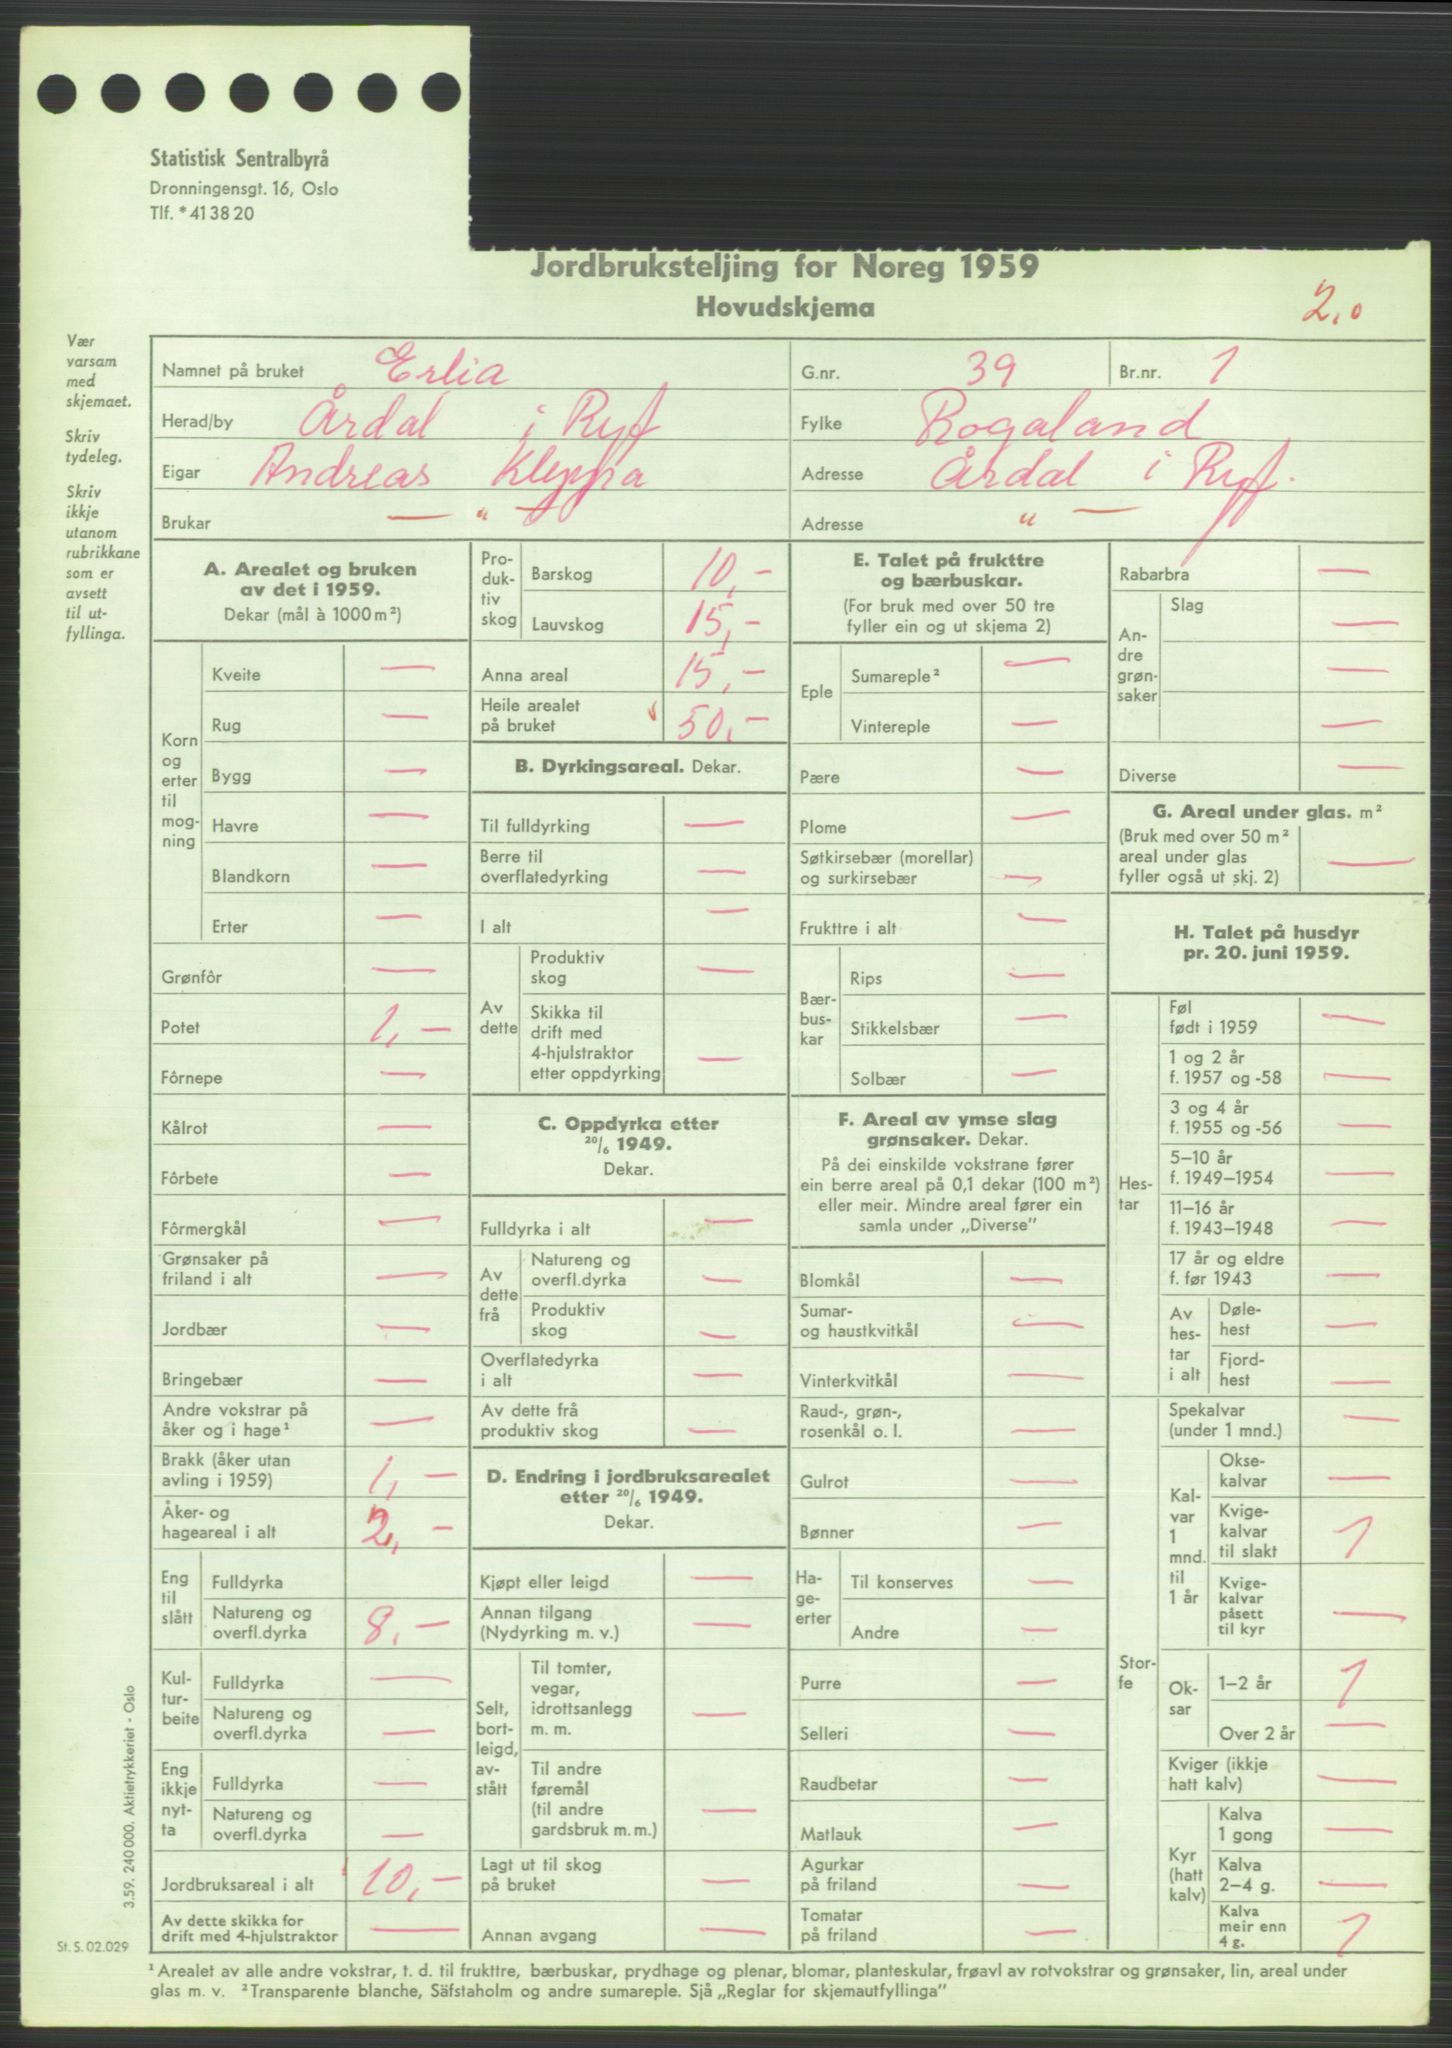 Statistisk Sentralbyrå
Dronningensgt. 16, Oslo
Tlf. *41 38 20
Jordbruksteljing for Noreg 1959
Hovudskjema
2,0
Vær
varsam
med
skjemaet.
Skriv
tydeleg.
Skriv
ikkje
utanom
rubrikkane
som er
avsett
til ut-
fyllinga.
Namnet på bruket Erlia G.nr. 39 Br.nr. 1
Herad/by Årdal i Ryf Fylke Rogaland
Eigar Andreas Kleppa Adresse Årdal i Ryf.
Brukar — „ — Adresse „ —
A. Arealet og bruken
av det i 1959.
Dekar (mål à 1000 m²)
Korn
og
erter
til
mog-
ning
Kveite —
Rug —
Bygg —
Havre —
Blandkorn —
Erter —
Grønfôr —
Potet 1,—
Fôrnepe —
Kålrot —
Fôrbete —
Fôrmergkål —
Grønsaker på
friland i alt —
Jordbær —
Bringebær —
Andre vokstrar på
åker og i hage¹ —
Brakk (åker utan
avling i 1959) 1,—
Åker- og
hageareal i alt 2,—
Eng
til
slått
Fulldyrka
Natureng og
overfl.dyrka 8,—
Kul-
tur-
beite
Fulldyrka —
Natureng og
overfl.dyrka —
Eng
ikkje
nyt-
ta
Fulldyrka —
Natureng og
overfl.dyrka —
Jordbruksareal i alt 10,—
Av dette skikka for
drift med 4-hjulstraktor —
Pro-
duk-
tiv
skog
Barskog 10,—
Lauvskog 15,—
Anna areal 15,—
Heile arealet
på bruket 50,—
B. Dyrkingsareal. Dekar.
Til fulldyrking —
Berre til
overflatedyrking —
I alt —
Av
dette
Produktiv
skog —
Skikka til
drift med
4-hjulstraktor
etter oppdyrking —
C. Oppdyrka etter
20/6 1949.
Dekar.
Fulldyrka i alt —
Av
dette
frå
Natureng og
overfl.dyrka —
Produktiv
skog —
Overflatedyrka
i alt —
Av dette frå
produktiv skog —
D. Endring i jordbruksarealet
etter 20/6 1949.
Dekar.
Kjøpt eller leigd —
Annan tilgang
(Nydyrking m. v.) —
Selt,
bort-
leigd,
av-
stått
Til tomter,
vegar,
idrottsanlegg
m. m. —
Til andre
føremål
(til andre
gardsbruk m. m.) —
Lagt ut til skog
på bruket —
Annan avgang —
E. Talet på frukttre
og bærbuskar.
(For bruk med over 50 tre
fyller ein og ut skjema 2)
Eple
Sumareple² —
Vintereple —
Pære —
Plome —
Søtkirsebær (morellar)
og surkirsebær —
Frukttre i alt —
Bær-
bus-
kar
Rips —
Stikkelsbær —
Solbær —
F. Areal av ymse slag
grønsaker. Dekar.
På dei einskilde vokstrane fører
ein berre areal på 0,1 dekar (100 m²)
eller meir. Mindre areal fører ein
samla under „Diverse”
Blomkål —
Sumar-
og haustkvitkål —
Vinterkvitkål —
Raud-, grøn-,
rosenkål o. l. —
Gulrot —
Bønner —
Ha-
ge-
erter
Til konserves —
Andre —
Purre —
Selleri —
Raudbetar —
Matlauk —
Agurkar
på friland —
Tomatar
på friland —
Rabarbra —
An-
dre
grøn-
saker
Slag —
—
—
Diverse —
G. Areal under glas. m²
(Bruk med over 50 m²
areal under glas
fyller også ut skj. 2) —
H. Talet på husdyr
pr. 20. juni 1959.
Hes-
tar
Føl
født i 1959 —
1 og 2 år
f. 1957 og -58 —
3 og 4 år
f. 1955 og -56 —
5–10 år
f. 1949–1954 —
11–16 år
f. 1943–1948 —
17 år og eldre
f. før 1943 —
Av
hes-
tar
i alt
Døle-
hest —
Fjord-
hest —
Stor-
fe
Spekalvar
(under 1 mnd.) —
Kal-
var
1
mnd.
til
1 år
Okse-
kalvar —
Kvige-
kalvar
til slakt 1
Kvige-
kalvar
påsett
til kyr —
Ok-
sar
1–2 år 1
Over 2 år —
Kviger (ikkje
hatt kalv) —
Kyr
(hatt
kalv)
Kalva
1 gong —
Kalva
2–4 g. —
Kalva
meir enn
4 g. 1
3.59. 240 000. Aktietrykkeriet - Oslo
St. S. 02.029
¹ Arealet av alle andre vokstrar, t. d. til frukttre, bærbuskar, prydhage og plenar, blomar, planteskular, frøavl av rotvokstrar og grønsaker, lin, areal under
glas m. v. ² Transparente blanche, Säfstaholm og andre sumareple. Sjå „Reglar for skjemautfyllinga”